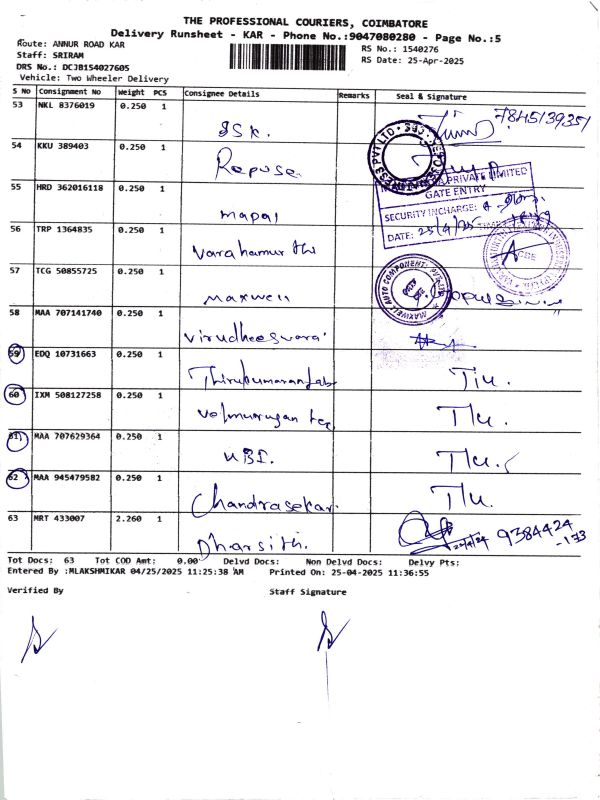 THE PROFESSIONAL COURIERS, COIMBATORE
Delivery Runsheet - KAR - Phone No.:9047080280 - Page No.:5
Route: ANNUR ROAD KAR
RS No.: 1540276
Staff: SRIRAM
RS Date: 25-Apr-2025
DRS No.: DCJB154027605
Vehicle: Two Wheeler Delivery
S No Consignment No Weight PCS Consignee Details Remarks Seal & Signature
53 NKL 8376019 0.250 1 JSK. 7845139351
54 KKU 389403 0.250 1 Repose
55 HRD 362016118 0.250 1 mapal
PRIVATE LIMITED
GATE ENTRY
SECURITY INCHARGE:
DATE: 25/4/25
56 TRP 1364835 0.250 1 Varahamurthi
CBE
57 TCG 50855725 0.250 1 Maxwell
MAXWELL AUTO COMPONENTS
58 MAA 707141740 0.250 1 Virudheeswarar
59 EDQ 10731663 0.250 1 Thirukumaran Labs TLU.
60 IXM 508127258 0.250 1 Velmurugan TLU.
61 MAA 707629364 0.250 1 UBI. TLU.
62 MAA 945479582 0.250 1 Chandrasekar. TLU.
63 MRT 433007 2.260 1 Dharsith. 9384424
-173
Tot Docs: 63 Tot COD Amt: 0.00 Delvd Docs: Non Delvd Docs: Delvy Pts:
Entered By :MLAKSHMIKAR 04/25/2025 11:25:38 AM Printed On: 25-04-2025 11:36:55
Verified By Staff Signature